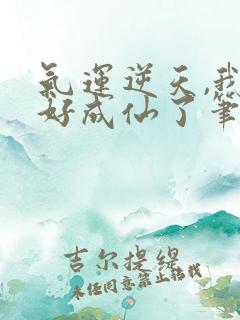 氣運逆天,我
好成仙了筆
吉尔提缇
未经同意禁止转载